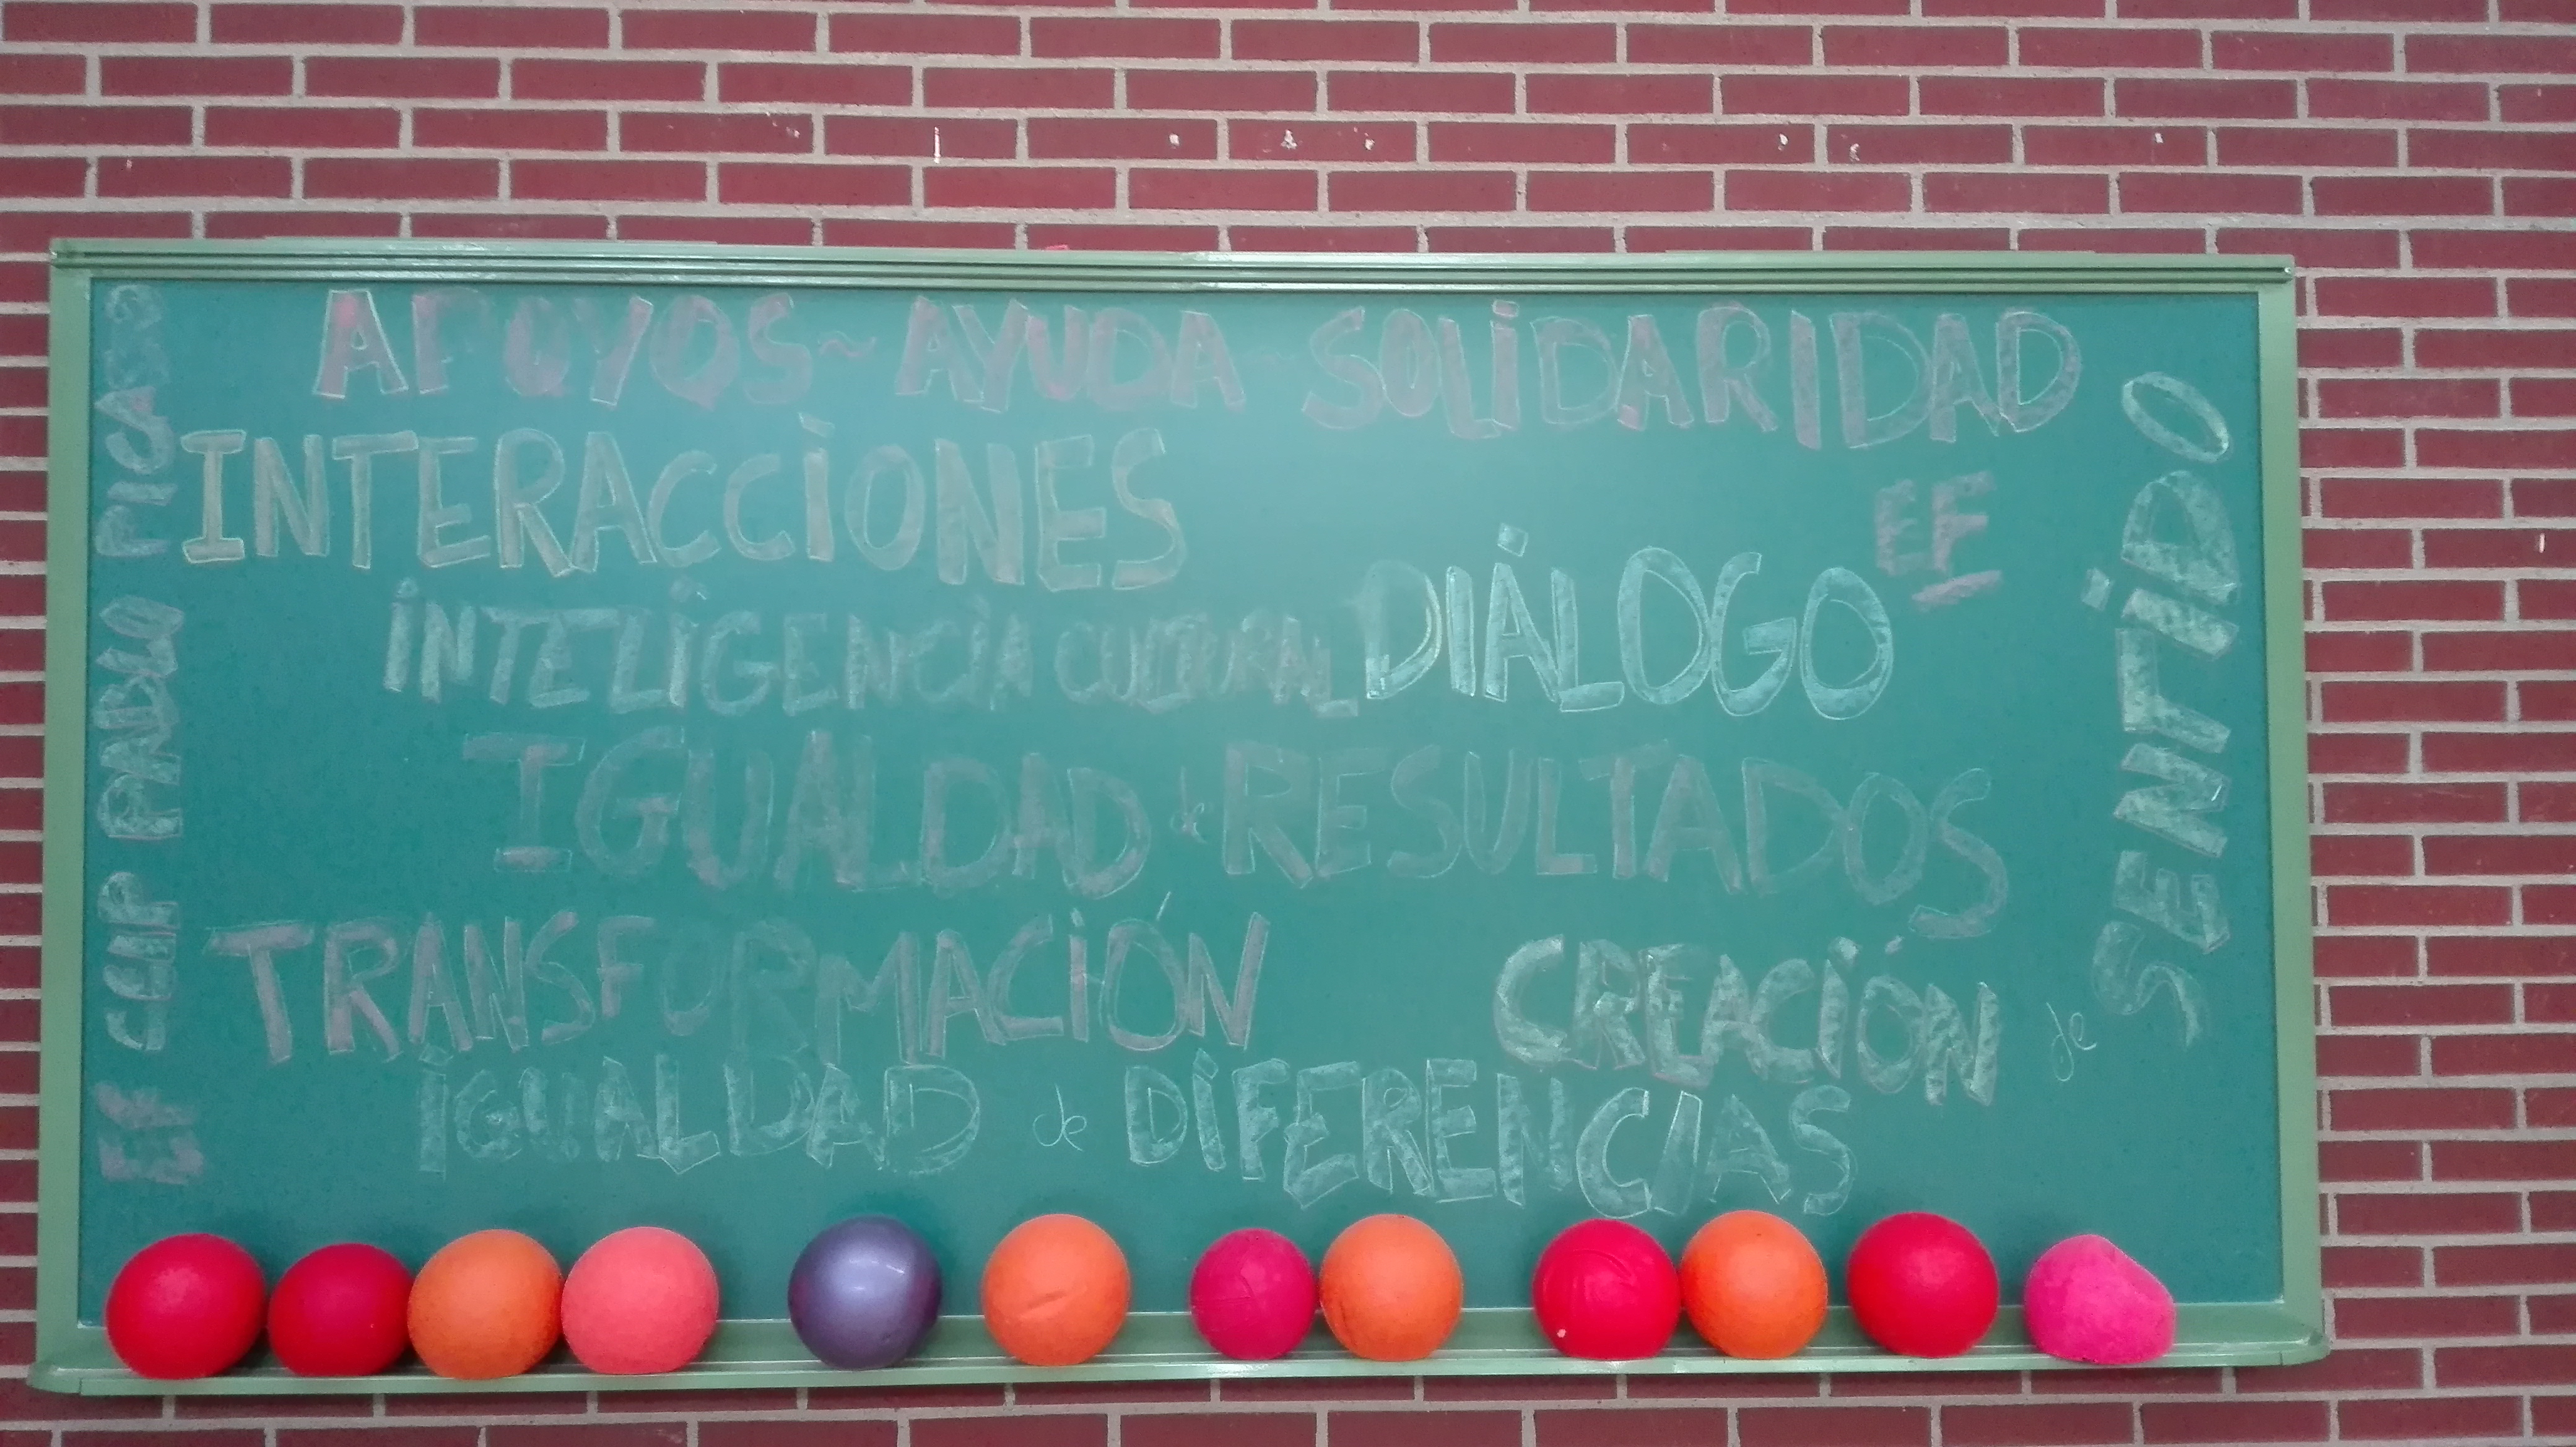 APOYOS ~ AYUDA - SOLIDARIDAD
INTERACCIONES
EF
INTELIGENCIA CULTURAL
DIÁLOGO
IGUALDAD de RESULTADOS
TRANSFORMACIÓN
CREACIÓN de SENTIDO
IGUALDAD de DIFERENCIAS
EF CEIP PABLO PICASSO